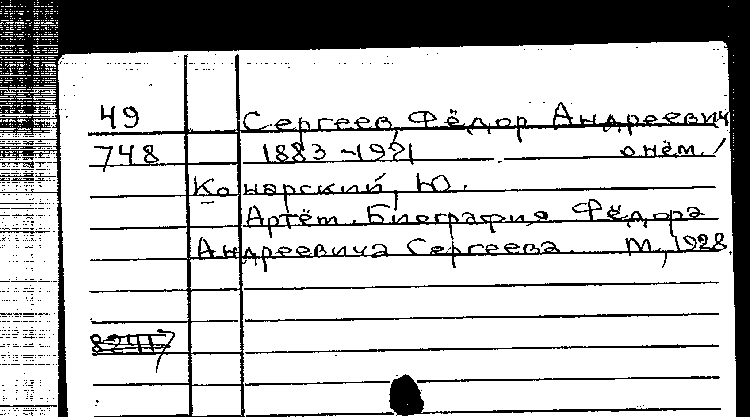 49 Сергеев, Фёдор Андреевич
748 1883-1921 о нём./
Конарский, Ю.
Артём. Биография Фёдора
Андреевича Сергеева. М., 1928.